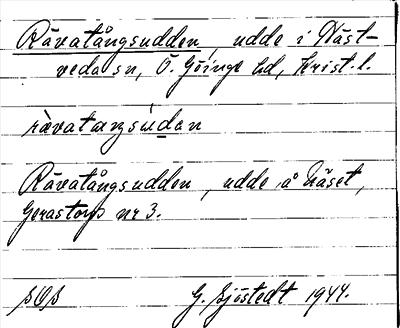 Rävatångsudden, udde i Näst-
veda sn, Ö. Göinge hd, Krist. l.
rävataŋsúdan
Rävatångsudden, udde å Näset,
Gerastorp nr 3.
SOS G. Sjöstedt 1944.